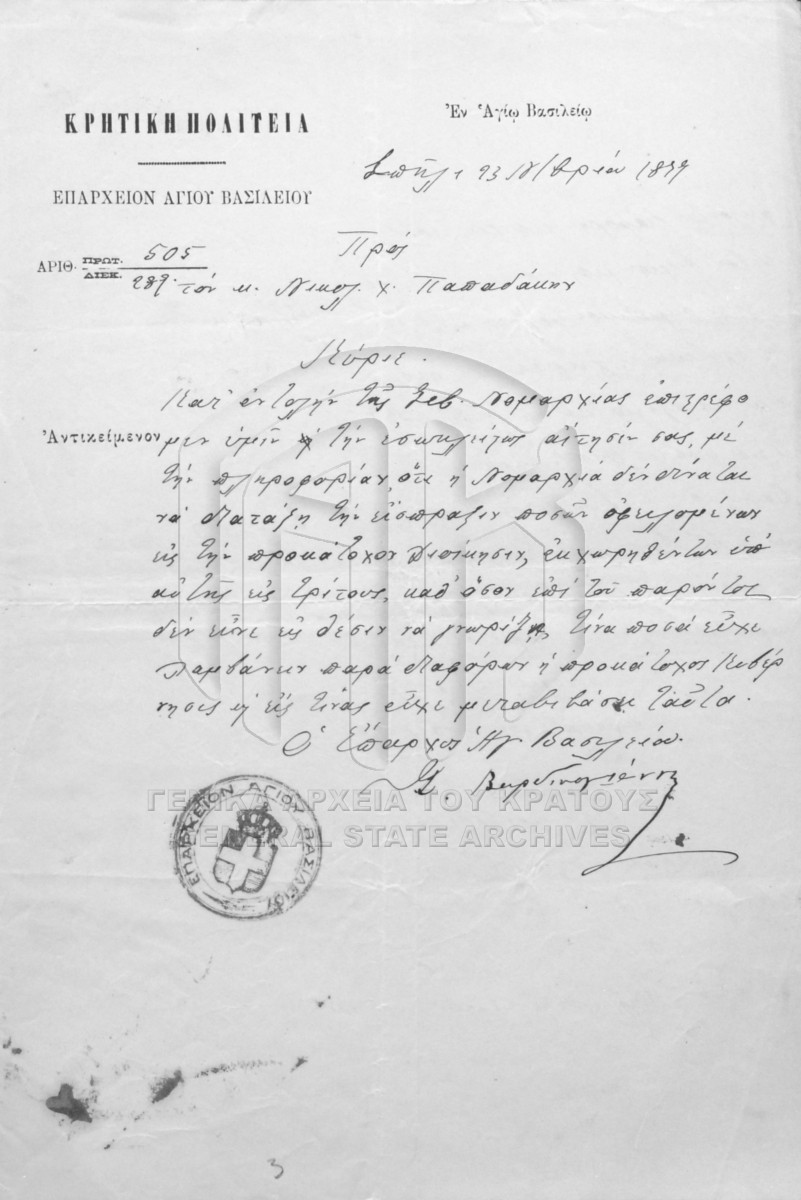 ΚΡΗΤΙΚΗ ΠΟΛΙΤΕΙΑ
ΕΠΑΡΧΕΙΟΝ ΑΓΙΟΥ ΒΑΣΙΛΕΙΟΥ
ΑΡΙΘ. ΠΡΩΤ. 505
ΔΙΕΚ. 289.
Ἐν Ἁγίῳ Βασιλείῳ
Σπήλι 23 Ν/βρίου 1899
Πρός
τόν κ. Νικολ. χ. Παπαδάκην
Κύριε.
Κατ' ἐντολήν τῆς Σεβ. Νομαρχίας ἐπιστρέφο
Ἀντικείμενον
μεν ὑμῖν τήν ἐσωκλείστως αἴτησίν σας, μέ
τήν πληροφορίαν, ὅτι ἡ Νομαρχία δέν δύναται
νά διατάξῃ τήν εἴσπραξιν ποσῶν ὀφειλομένων
εἰς τήν προκάτοχον Διοίκησιν, ἐκχωρηθέντων ὑπ'
αὐτῆς εἰς τρίτους, καθ' ὅσον ἐπί τοῦ παρόντος
δέν εἶνε εἰς θέσιν νά γνωρίζῃ, τίνα ποσά εἶχε
λαμβάνειν παρά διαφόρων ἡ προκάτοχος Κυβέρ
νησις ἤ εἰς τίνας εἶχε μεταβιβάσει ταῦτα.
Ὁ Ἔπαρχος Ἁγ. Βασιλείου.
Βαρδινογιάννης
ΕΠΑΡΧΕΙΟΝ ΑΓΙΟΥ ΒΑΣΙΛΕΙΟΥ
ΓΕΝΙΚΑ ΑΡΧΕΙΑ ΤΟΥ ΚΡΑΤΟΥΣ
GENERAL STATE ARCHIVES
3